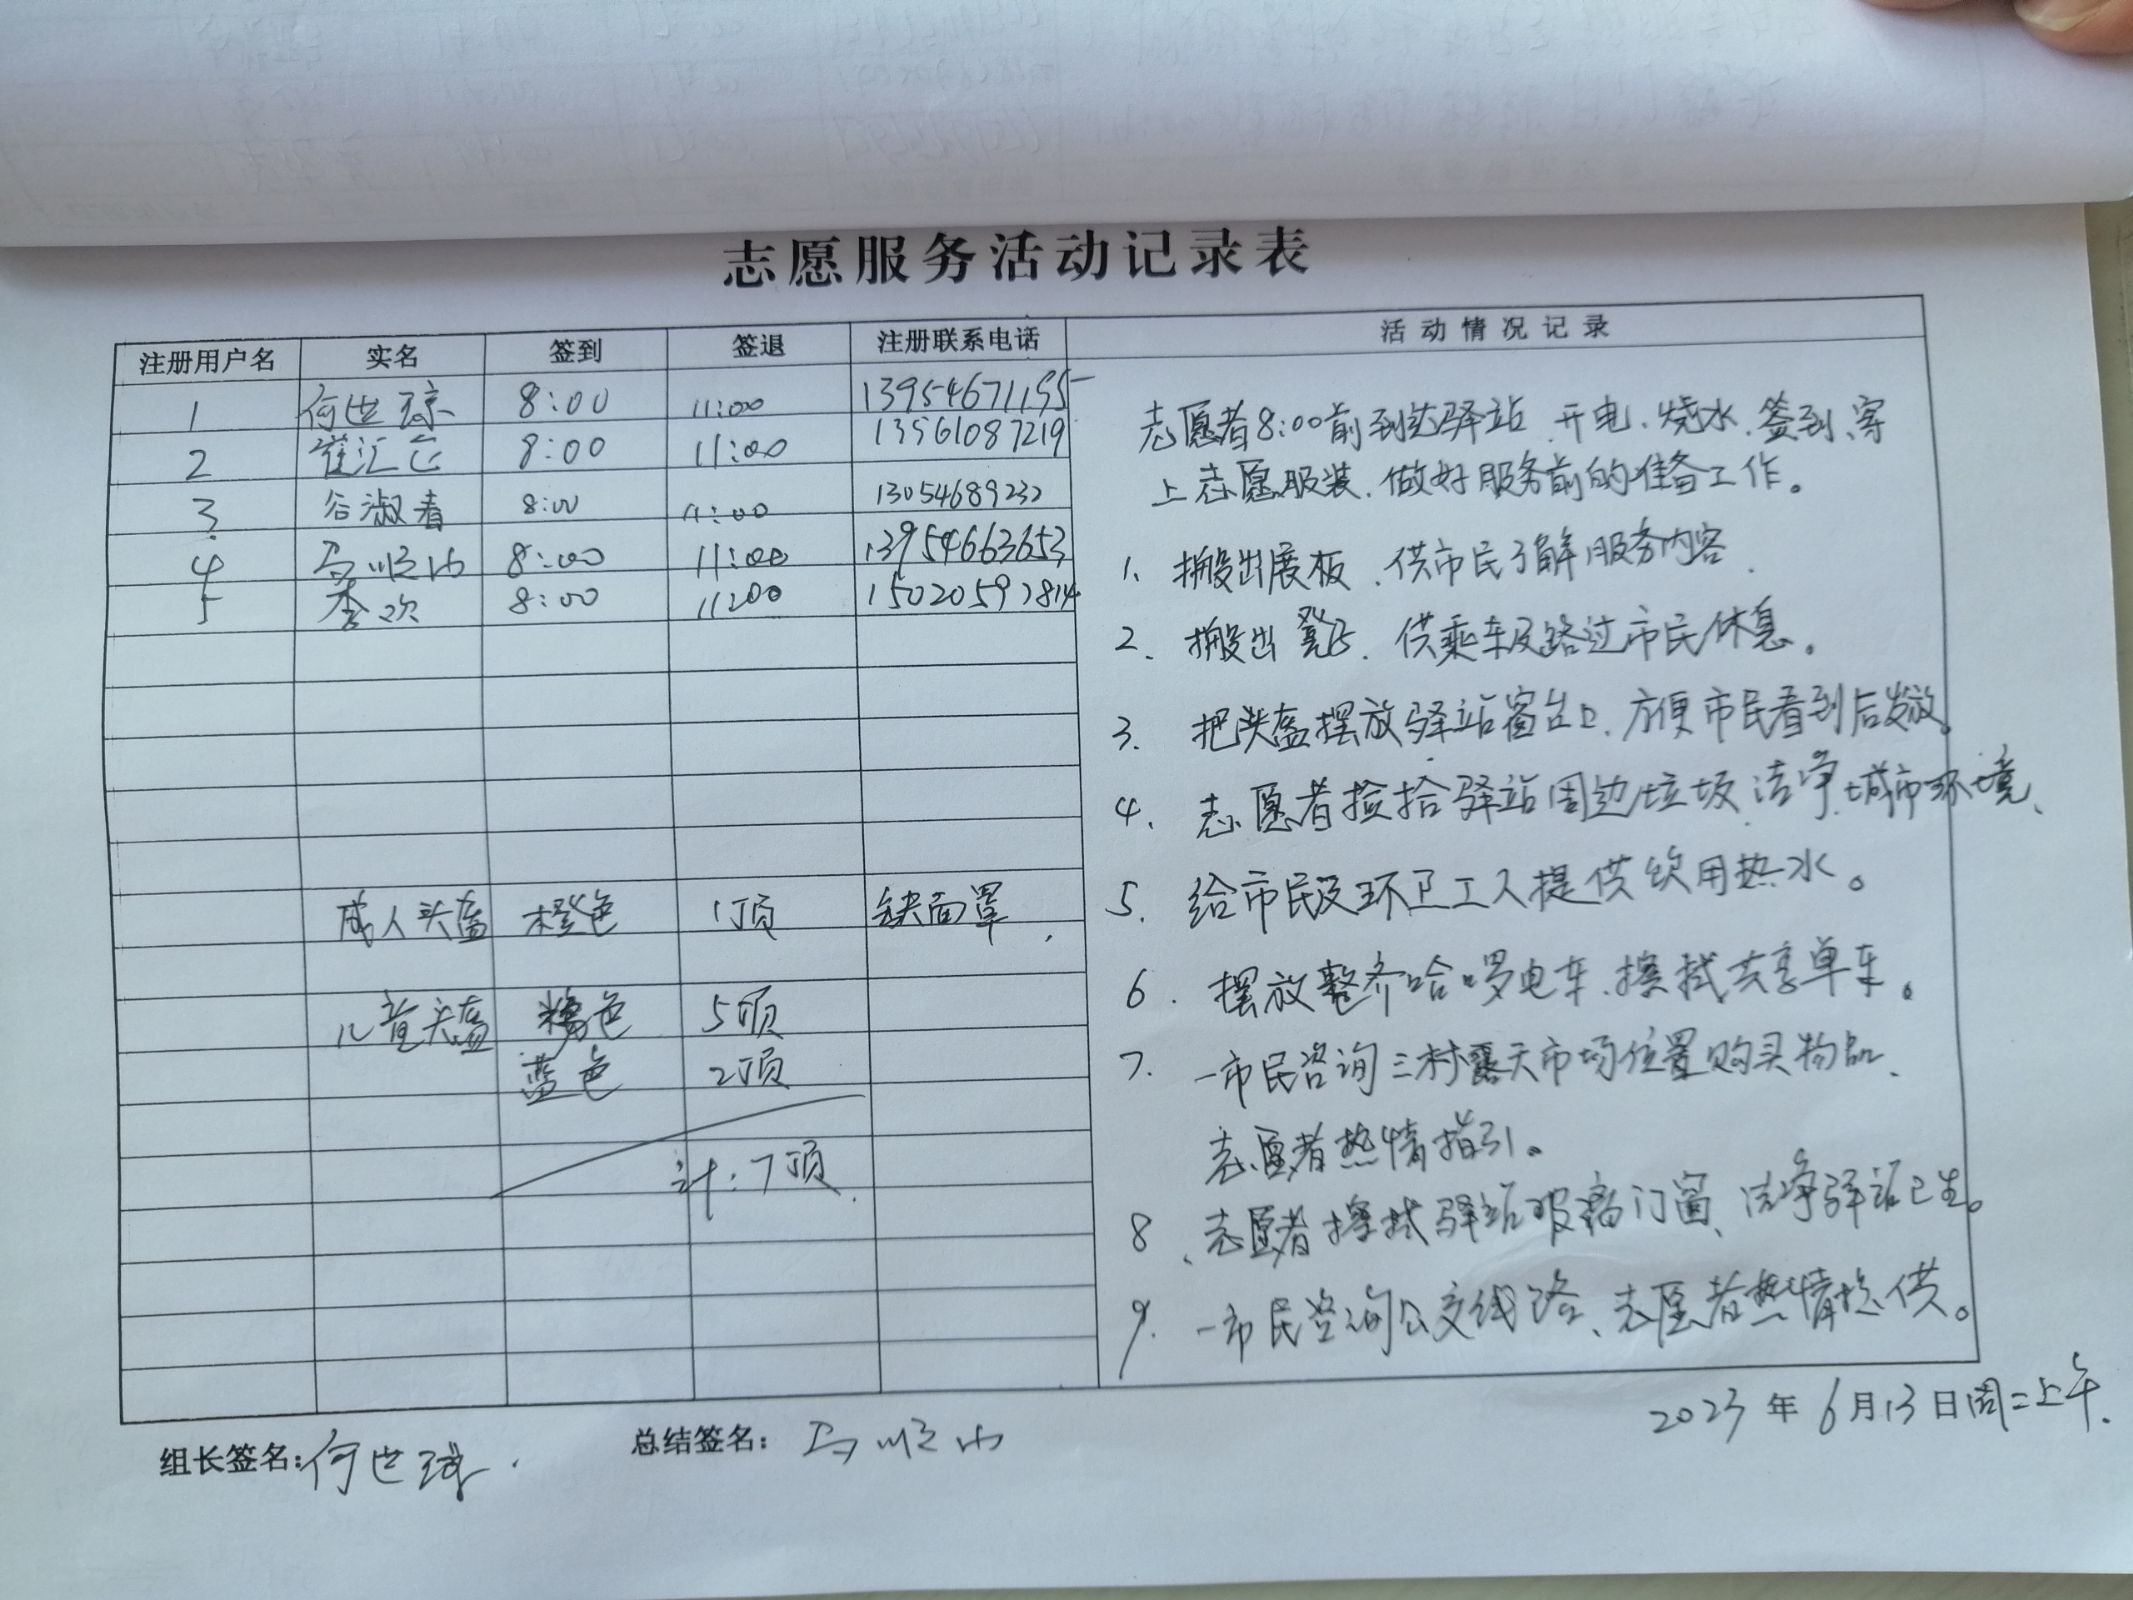 志愿服务活动记录表
注册用户名 实名 签到 签退 注册联系电话 活动情况记录
1 何世琼 8:00 11:00 13954671155
2 崔汇 8:00 11:00 13561087219
3 谷淑春 8:00 11:00 13054689232
4 马顺山 8:00 11:00 13954663653
5 李次 8:00 11:00 15020592814
成人头盔 橙色 1顶 缺面罩.
儿童头盔 橘色 5顶
蓝色 2顶
计:7顶.
志愿者8:00前到达驿站、开电、烧水、签到、穿
上志愿服装、做好服务前的准备工作。
1、搬出展板、供市民了解服务内容.
2、搬出凳子、供乘车及路过市民休息。
3、把头盔摆放驿站窗台口、方便市民看到后发放。
4、志愿者捡拾驿站周边垃圾、洁净城市环境、
5、给市民及环卫工人提供饮用热水。
6、摆放整齐哈啰电车、擦拭共享单车。
7、一市民咨询三村露天市场位置购买物品、
志愿者热情指引。
8、志愿者擦拭驿站玻璃门窗、洁净驿站卫生。
9、一市民咨询公交线路、志愿者热情提供。
组长签名:何世琼. 总结签名:马顺山 2023年6月13日周二上午.